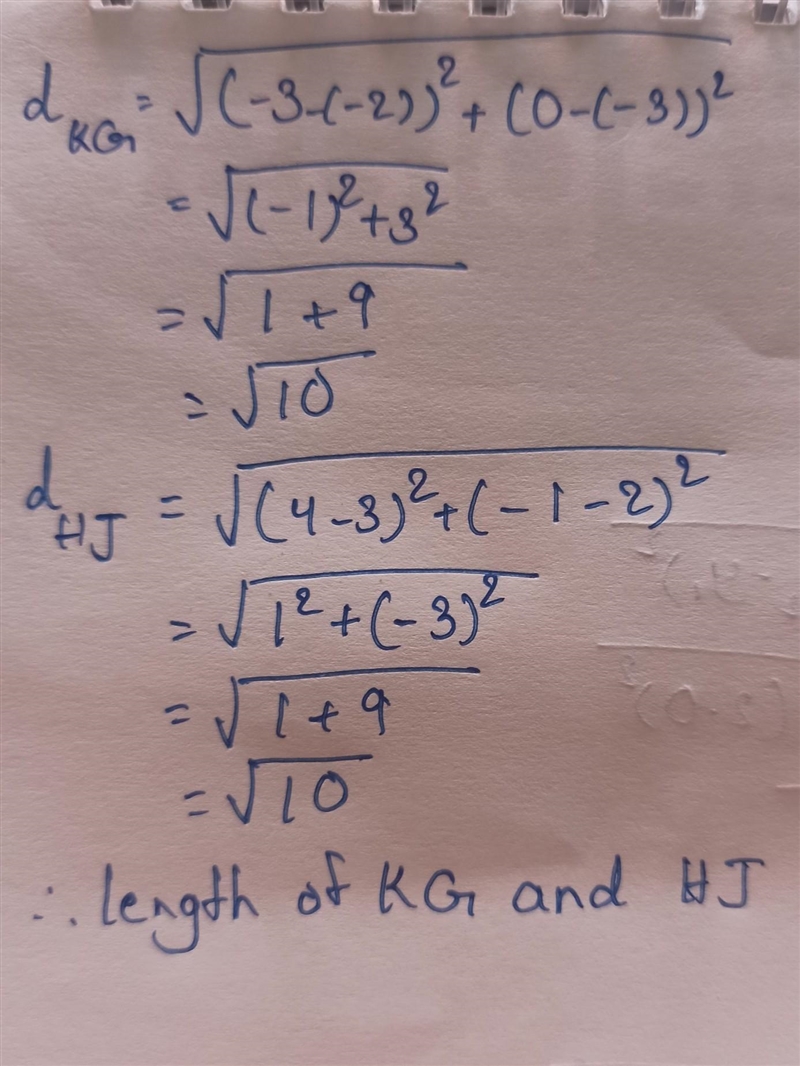 d_KG = √((-3-(-2))² + (0-(-3))²)
= √((-1)² + 3²)
= √(1 + 9)
= √10
d_HJ = √((4-3)² + (-1-2)²)
= √(1² + (-3)²)
= √(1 + 9)
= √10
∴ length of KG and HJ